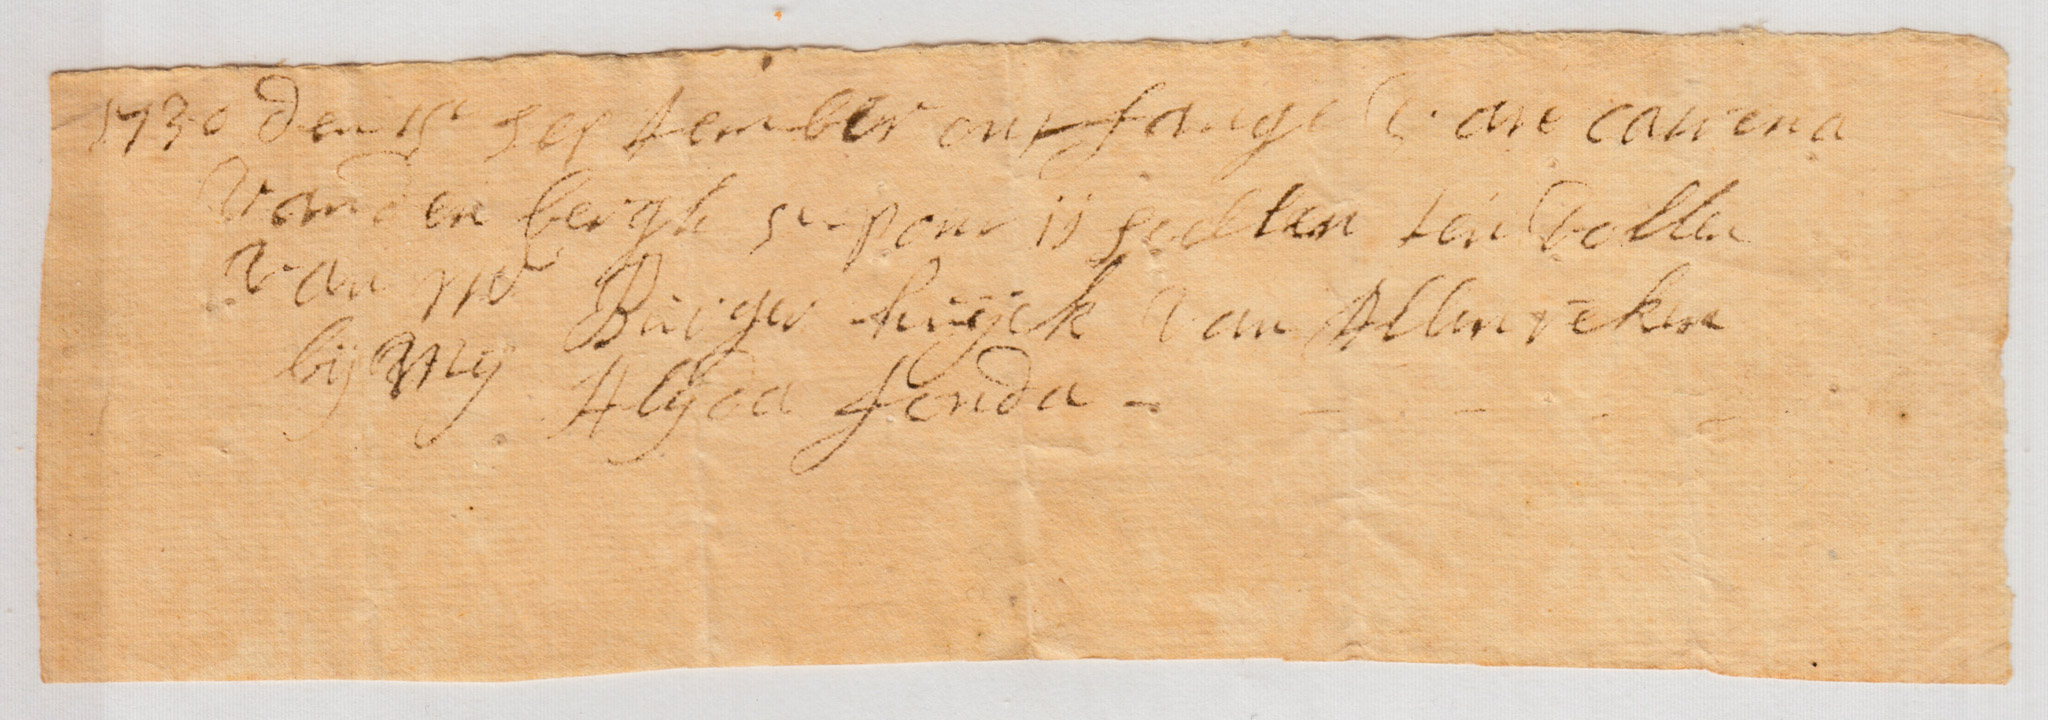 1730 den 15 september ontfange van catrena
vanden bergh 5 pont 11 schllen ten vollen
van mr Burger huijck van Allen rekn
bij mij Alijda fonda -